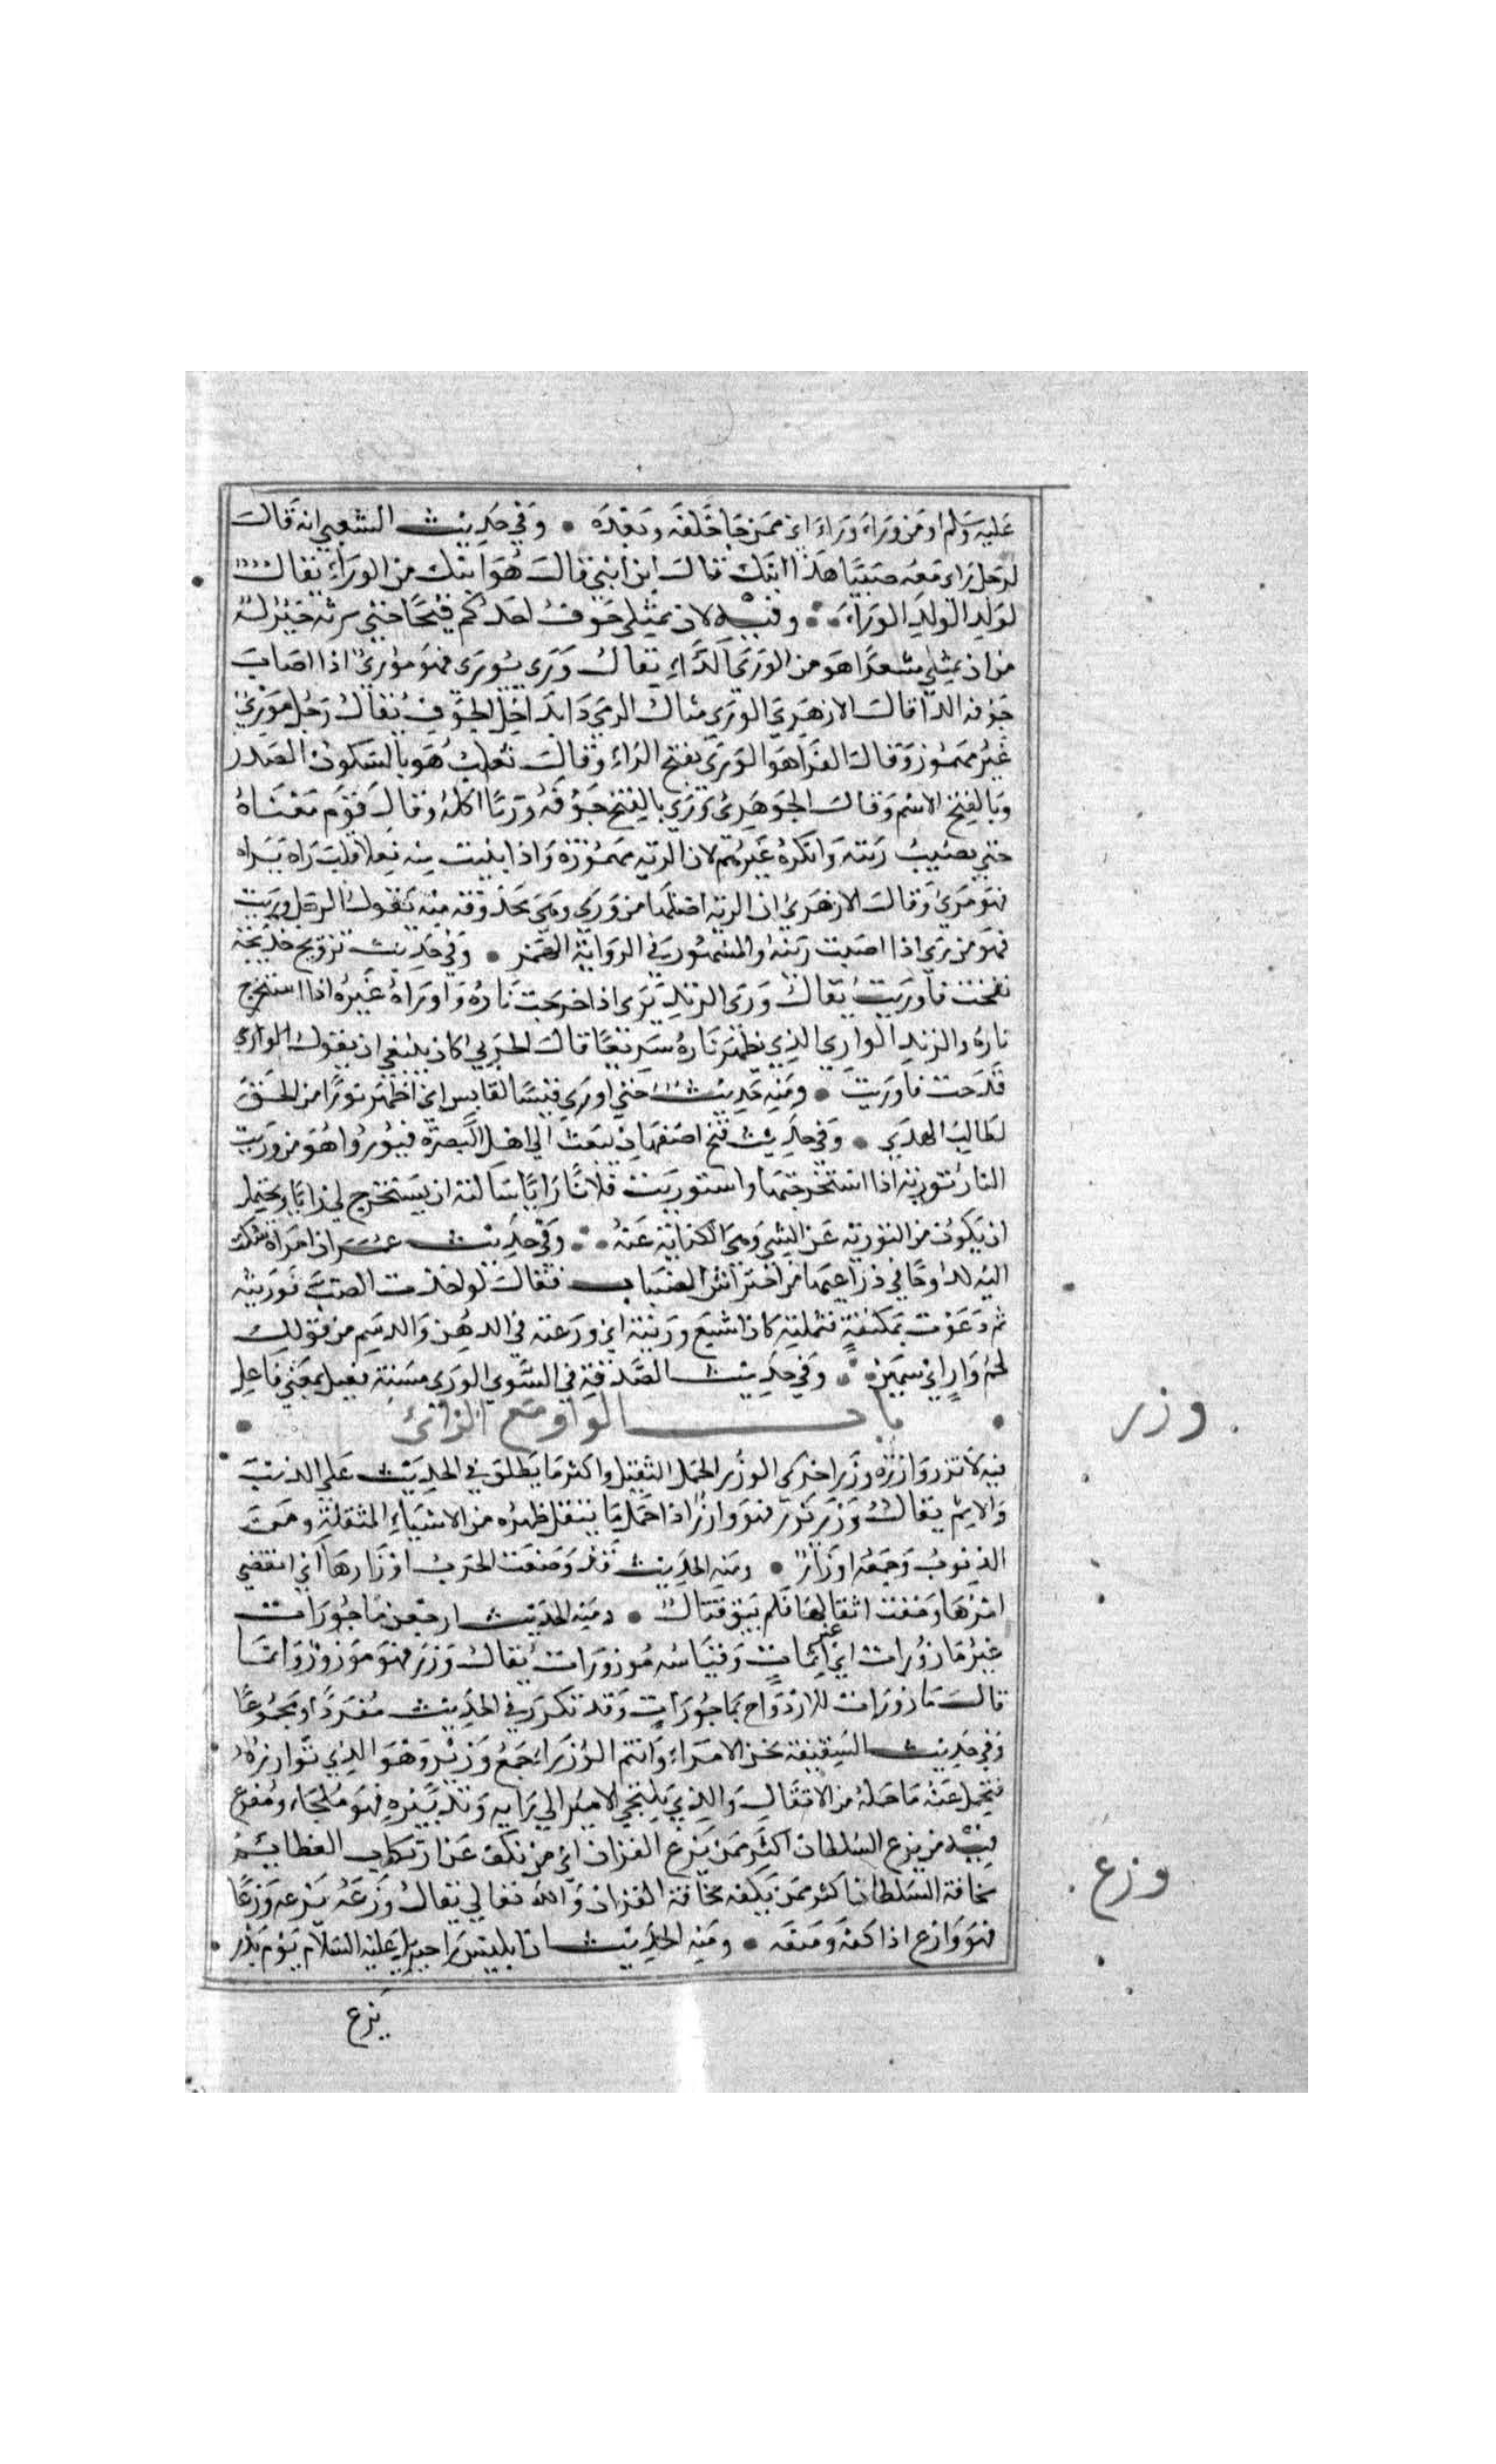 عليه وسلم او من وراء وراء اي ممن جا خلفه وبعده • وفي حديث الشعبي انه قال
لرجل راى معه صبيا هذا ابنك قال ابن ابني قال هو ابنك من الوراء يقال
لولد الولد الوراء • وفيه لان يمتلي جوف احدكم قيحا حتى يريه خير له
من ان يمتلي شعرا هو من الوري الداء يقال وري يوري فهو موري اذا اصاب
جوفه الدا قال الازهري الوري مثال الرمي دا يداخل الجوف يقال رجل موري
غير مهموز وقال الفرا هو الوري بفتح الراء وقال ثعلب هو بالسكون المصدر
وبالفتح الاسم وقال الجوهري وري القيح جوفه وريا اكله وقال قوم معناه
حتى يصيب ريته وانكره غيرهم لان الريه مهموزة واذا بنيت منه فعلا قلت راه يراه
فهو مري وقال الازهري ان الريه اصلها من وري وهي محذوفه منه تقول الرجل وريت
فهو موري اذا اصبت ريته والمشهور في الرواية الهمز • وفي حديث تزويج خديجة
نفخت فاوريت يقال وري الزند يري اذا خرجت ناره واوراه غيره اذا استخرج
ناره والزند الواري الذي تظهر ناره سريعا قال الحربي كان ينبغي ان يقول
قدحت فاوريت • ومنه حديث حتى اوري قبسا لقابس اي اظهر نورا من الحق
لطالب الهدي • وفي حديث فتح اصفهان تبعث الي اهل البصرة فيوروا هو من وريت
النار تورية اذا استخرجتها واستوريت فلانا رايا سالته ان يستخرج لي رايا ويحتمل
ان يكون من التورية عن الشي وهي الكناية عنه • وفي حديث عمر ان امراة شكت
اليه كدوحا في ذراعيها من احتراش الضباب فقال لو اخذت الضب فوريته
ثم دعوت بمكتفة فثملته كان اشبع وريته اي روغته في الدهن والدسم من قولك
لحم وار اي سمين • وفي حديث الصدقة في الشوي الوري مسنة فعيل بمعنى فاعل
باب الواو مع الزائ
وزر
فيه لا تزر وازرة وزر اخرى الوزر الحمل الثقيل واكثر ما يطلق في الحديث على الذنب
والاثم يقال وزر يزر فهو وازر اذا حمل ما يثقل ظهره من الاشياء المثقلة ومن
الذنوب وجمعه اوزار • ومنه الحديث قد وضعت الحرب اوزارها اي انقضي
امرها وخفت اثقالها فلم يبق قتال • ومنه الحديث ارجعن ماجورات
غير مازورات اي غير اثمات وقياسه موزورات يقال وزر فهو موزور وانما
قال مازورات للازدواج بماجورات وقد تكرر في الحديث مفردا ومجموعا
وفي حديث السقيفة نحن الامراء وانتم الوزراء جمع وزير وهو الذي توازره
فيحمل عنه ما حمله من الاثقال والذي يلتجي الامير الي رايه وتدبيره فهو ملجاء ومفزع
وزع
فيه من يزع السلطان اكثر ممن يزع القران اي من تكف عن ارتكاب العظائم
مخافة السلطان اكثر ممن يكفه مخافة القران والله تعالى يقال وزعه يزعه وزعا
فهو وازع اذا كفه ومنعه • ومنه الحديث ان ابليس راى جبريل عليه السلام يوم بدر
يزع